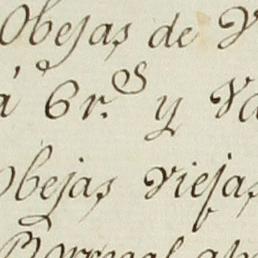 Obejas de V
á 6 r.s y Va
Obejas Viejas